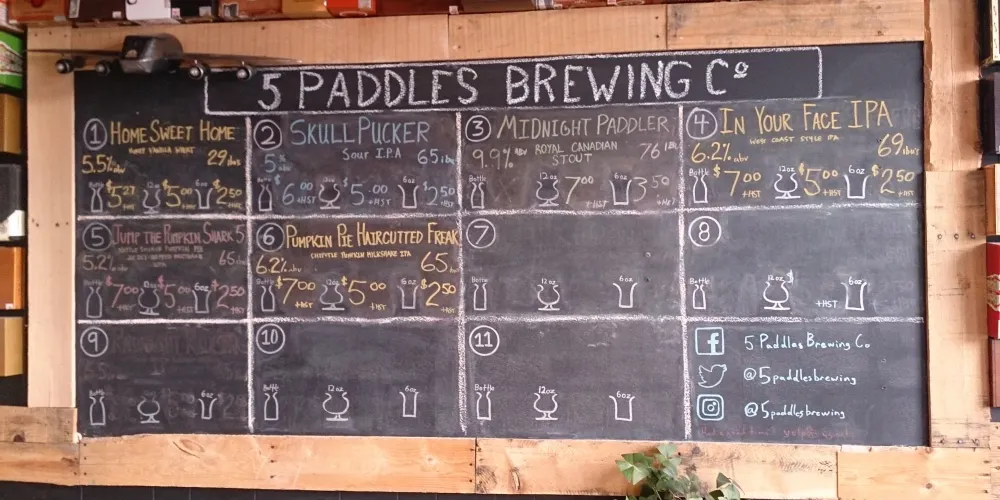 5 PADDLES BREWING Cº
1 HOME SWEET HOME
HONEY VANILLA WHEAT
5.5% abv 29 ibus
$5.27 +HST 12oz $5.00 +HST 6oz $2.50 +HST
2 SKULL PUCKER
SOUR I.P.A
5% abv 65 ibu
Bottle $6.00 +HST 12oz $5.00 +HST 6oz $2.50 +HST
3 MIDNIGHT PADDLER
ROYAL CANADIAN
STOUT
9.9% ABV 76 IBU
Bottle 12oz 7.00 +HST 6oz 3.50 +HST
4 IN YOUR FACE IPA
WEST COAST STYLE IPA
6.2% abv 69 ibu's
Bottle $7.00 +HST 12oz $5.00 +HST 6oz $2.50 +HST
5 JUMP THE PUMPKIN SHARK 5
5.2% 65 ibu
Bottle $7.00 +HST 12oz $5.00 +HST 6oz $2.50 +HST
6 PUMPKIN PIE HAIRCUTTED FREAK
CHIPOTLE PUMPKIN MILKSHAKE IPA
6.2% abv 65 ibu
Bottle $7.00 +HST 12oz $5.00 +HST 6oz $2.50 +HST
7
Bottle 12oz 6oz
8
Bottle 12oz +HST 6oz
9
Bottle 12oz 6oz
10
Bottle 12oz 6oz
11
Bottle 12oz 6oz
f 5 Paddles Brewing Co
@5paddlesbrewing
@5paddlesbrewing